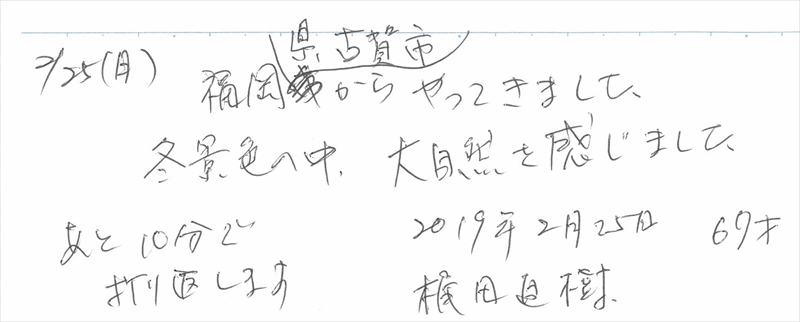 2/25(月)
県古賀市
福岡からやってきました、
冬景色の中、大自然を感じました、
あと10分で
折り返します
2019年2月25日 69才
梶田直樹